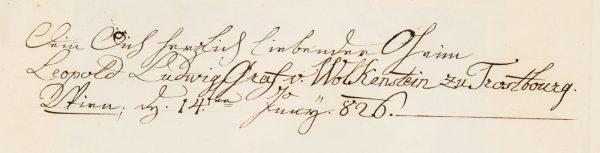 Dein Dich herzlich liebender Oheim
Leopold Ludwig Graf v. Wolkenstein zu Trostbourg.
Wien, d. 14ten Junÿ. 826.